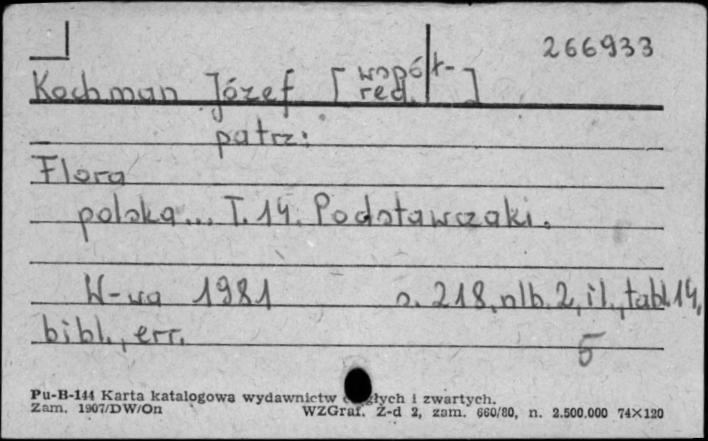 266933
Kochman Józef [współ-
red.]
patrz:
Flora
polska... T. 14. Podstawczaki.
W-wa 1981 s. 218, nlb. 2, il., tabl. 14,
bibl., err.
5
Pu-B-144 Karta katalogowa wydawnictw i zwartych.
Zam. 1907/DW/On WZGraf. Z-d 2, zam. 660/80, n. 2.500.000 74×120